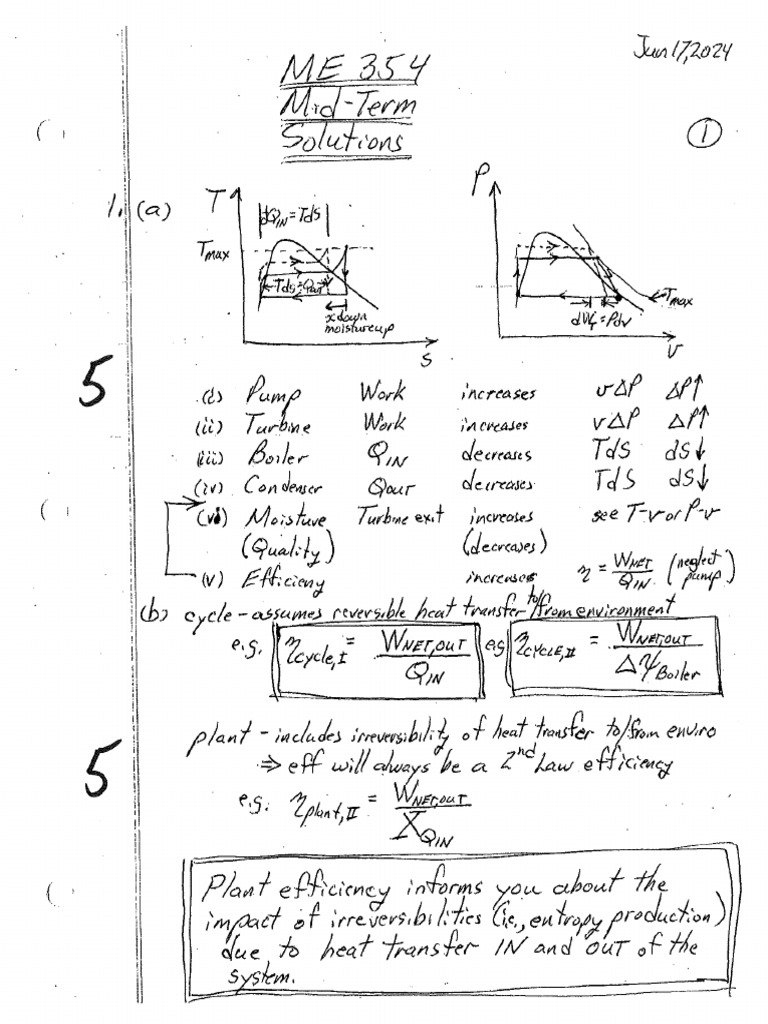 Jun 17, 2024
ME 354
Mid-Term
Solutions
1
1. (a)
T
dQIN = Tds
Tmax
Tds = Qout
x down
moisture up
s
P
Tmax
= Pdv
v
5
(i) Pump Work increases v∆P ∆P↑
(ii) Turbine Work increases v∆P ∆P↑
(iii) Boiler QIN decreases TdS dS↓
(iv) Condenser QOUT decreases TdS dS↓
(vi) Moisture Turbine exit increases see T-v or P-v
(Quality) (decreases)
(v) Efficiency increases η = WNET/QIN (neglect pump)
(b) cycle - assumes reversible heat transfer to/from environment
e.g. ηcycle,I = WNET,OUT/QIN eg ηCYCLE,II = WNET,OUT/∆ψBoiler
plant - includes irreversibility of heat transfer to/from enviro
5
⇒ eff will always be a 2nd Law efficiency
e.g. ηplant,II = WNET,OUT/XQIN
Plant efficiency informs you about the
impact of irreversibilities (i.e., entropy production)
due to heat transfer IN and OUT of the
system.